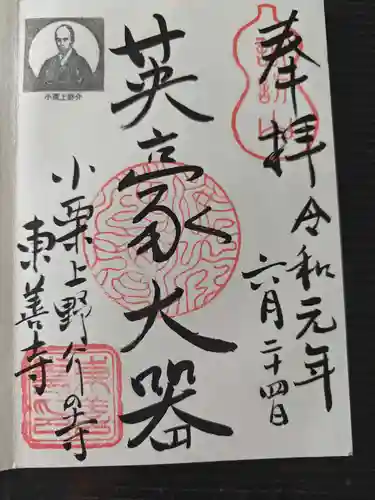 奉拝
令和元年
六月二十四日
英豪大器
小栗上野介の寺
東善寺
小栗上野介